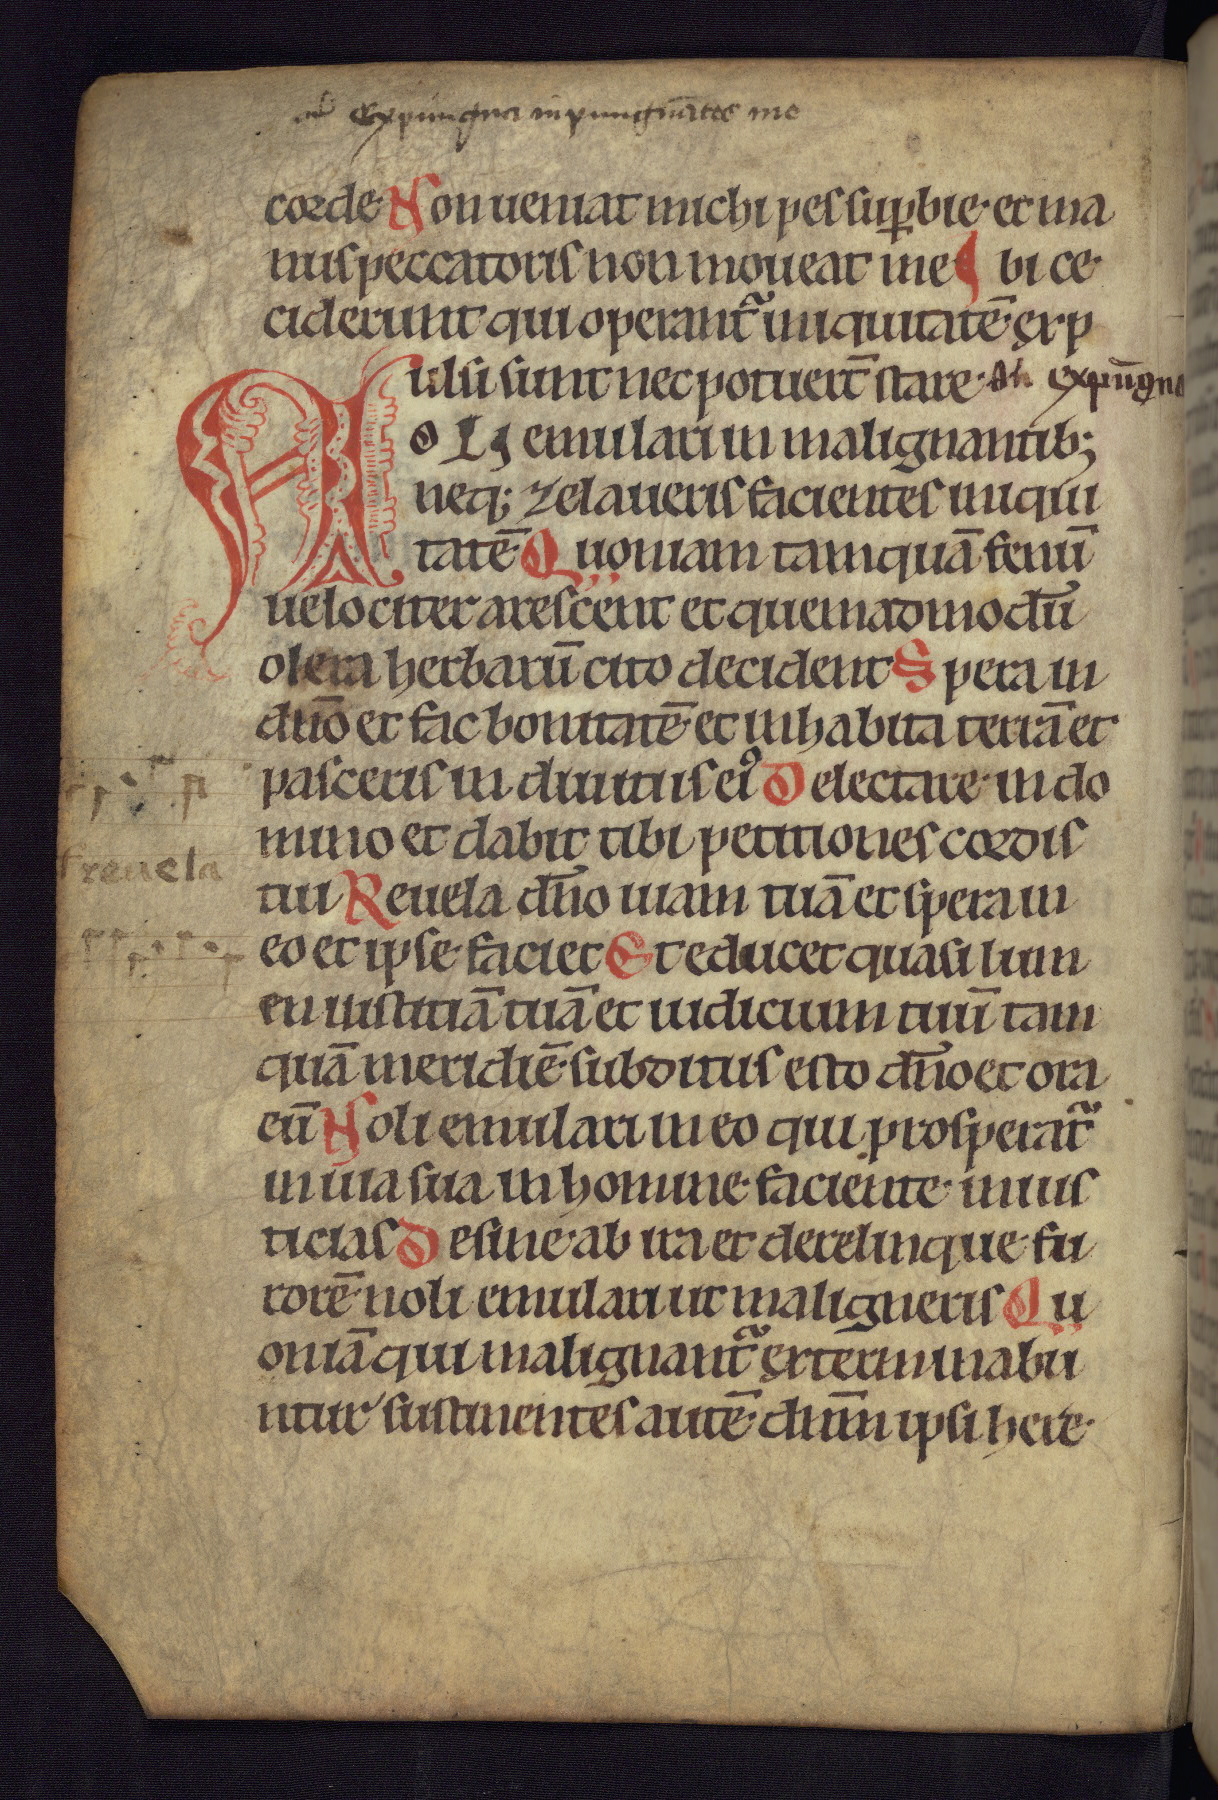 Expungna inpungnātes me
corde Non ueniat michi pes suꝑbie et ma
nus peccatoris non moueat me Ibi ce
ciderunt qui operant᷑ iniquitatē exp
ulsi sunt nec potuer̄t stare an̄ expūgna
NOLI emulari in malignantib;
neq; zelaueris facientes iniqui
tatē Quoniam tamquā fenū
uelociter arescent et quemadmodū
olera herbarū cito decident Spera in
dn̄o et fac bonitatē et inhabita terrā et
pasceris in diuitiis eiꝰ Delectare in do
mino et dabit tibi petitiones cordis
reuela
tui Reuela dn̄o uiam tuā et spera in
eo et ipse faciet Et educet quasi lum
en iustitiā tuā et iudicium tuū tam
quā meridiē subditus esto dn̄o et ora
eū Noli emulari in eo qui prosperat᷑
in uia sua in homine faciente inius
ticias Desine ab ira et derelinque fu
rorē noli emulari ut maligneris Qu
oniā qui malignant᷑ exterminabu
ntur sustinentes autē dn̄m ipsi here